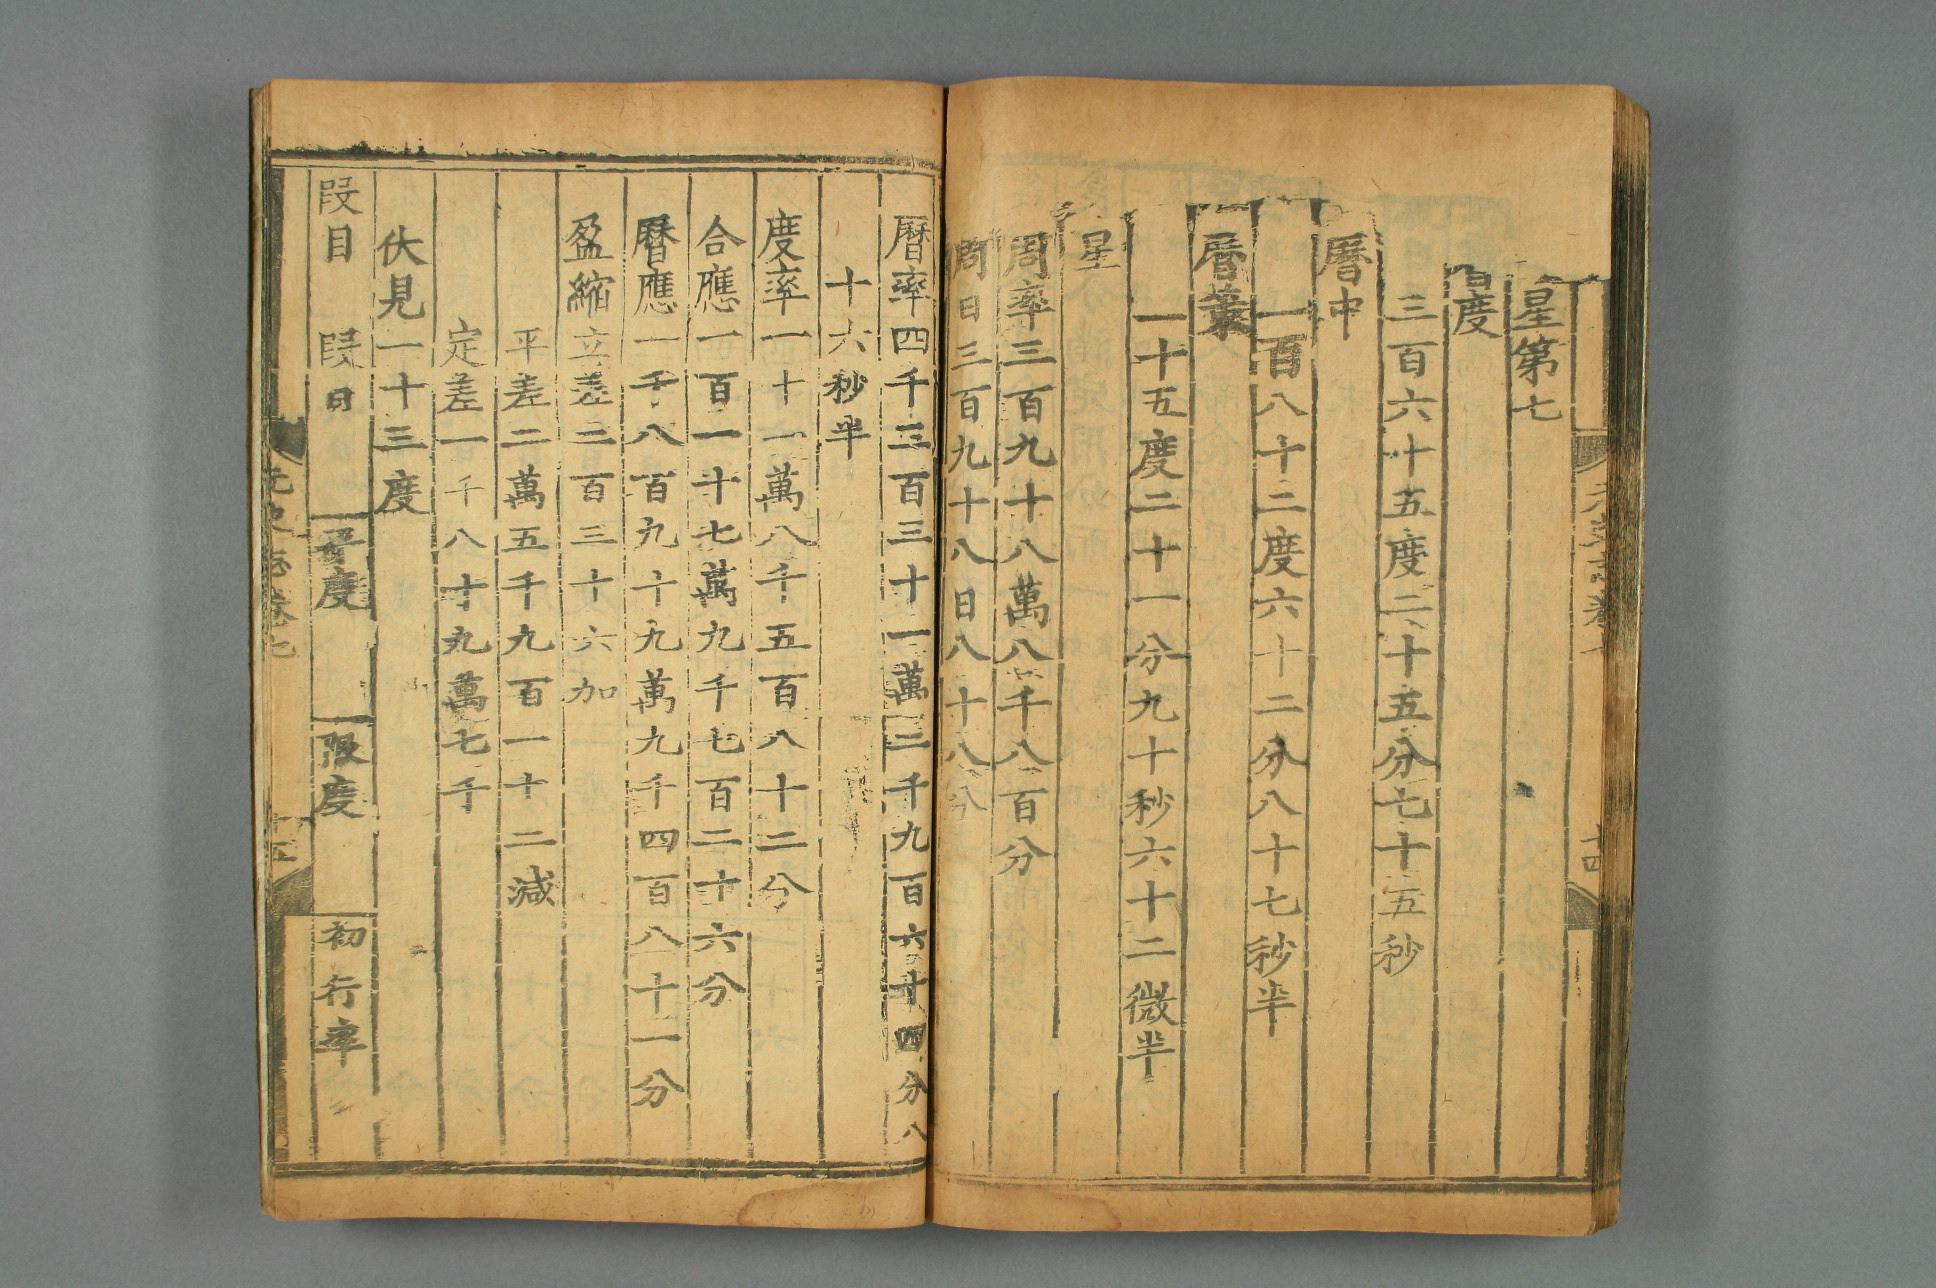 星第七
度
三百六十五度二十五分七十五秒
曆中
一百八十二度六十二分八十七秒半
曆策
一十五度二十一分九十秒六十二微半
星
周率三百九十八萬八千八百分
周日三百九十八日八十八分
曆率四千三百三十一萬二千九百六十四分八
十六秒半
度率一十一萬八千五百八十二分
合應一百一十七萬九千七百二十六分
曆應一千八百九十九萬九千四百八十一分
盈縮立差二百三十六加
平差二萬五千九百一十二減
定差一千八十九萬七千
伏見一十三度
段目 段日 平度 限度 初行率
元史志卷七 十五